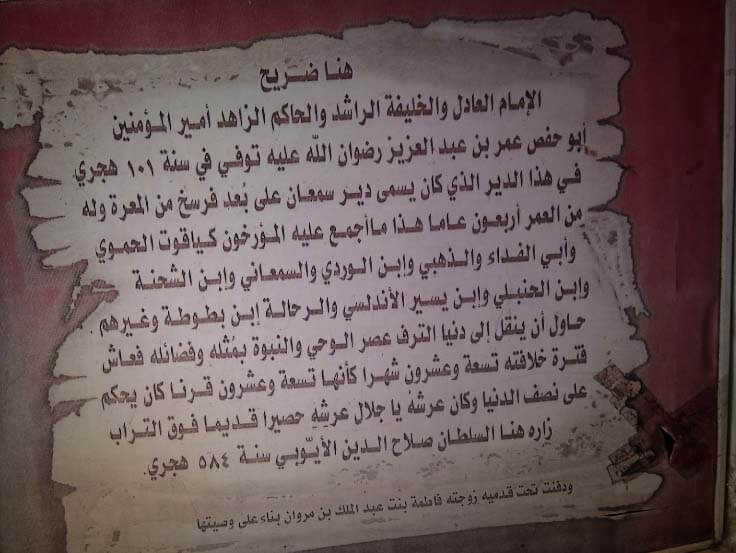 هنا ضريح
الإمام العادل والخليفة الراشد والحاكم الزاهد أمير المؤمنين
أبو حفص عمر بن عبد العزيز رضوان الله عليه توفي في سنة ١٠١ هجري
في هذا الدير الذي كان يسمى دير سمعان على بُعد فرسخ من المعرة وله
من العمر أربعون عاما هذا ماأجمع عليه المؤرخون كياقوت الحموي
وأبي الفداء والذهبي وابن الوردي والسمعاني وابن الشحنة
وابن الحنبلي وابن يسير الأندلسي والرحالة إبن بطوطة وغيرهم .
حاول أن ينقل إلى دنيا الترف عصر الوحي والنبوة بمُثله وفضائله فعاش
فترة خلافته تسعة وعشرون شهرا كأنها تسعة وعشرون قرنا كان يحكم
على نصف الدنيا وكان عرشهُ يا جلال عرشهِ حصيرا قديما فوق التراب
زاره هنا السلطان صلاح الدين الأيّوبي سنة ٥٨٤ هجري.
ودفنت تحت قدميه زوجته فاطمة بنت عبد الملك بن مروان بناء على وصيتها